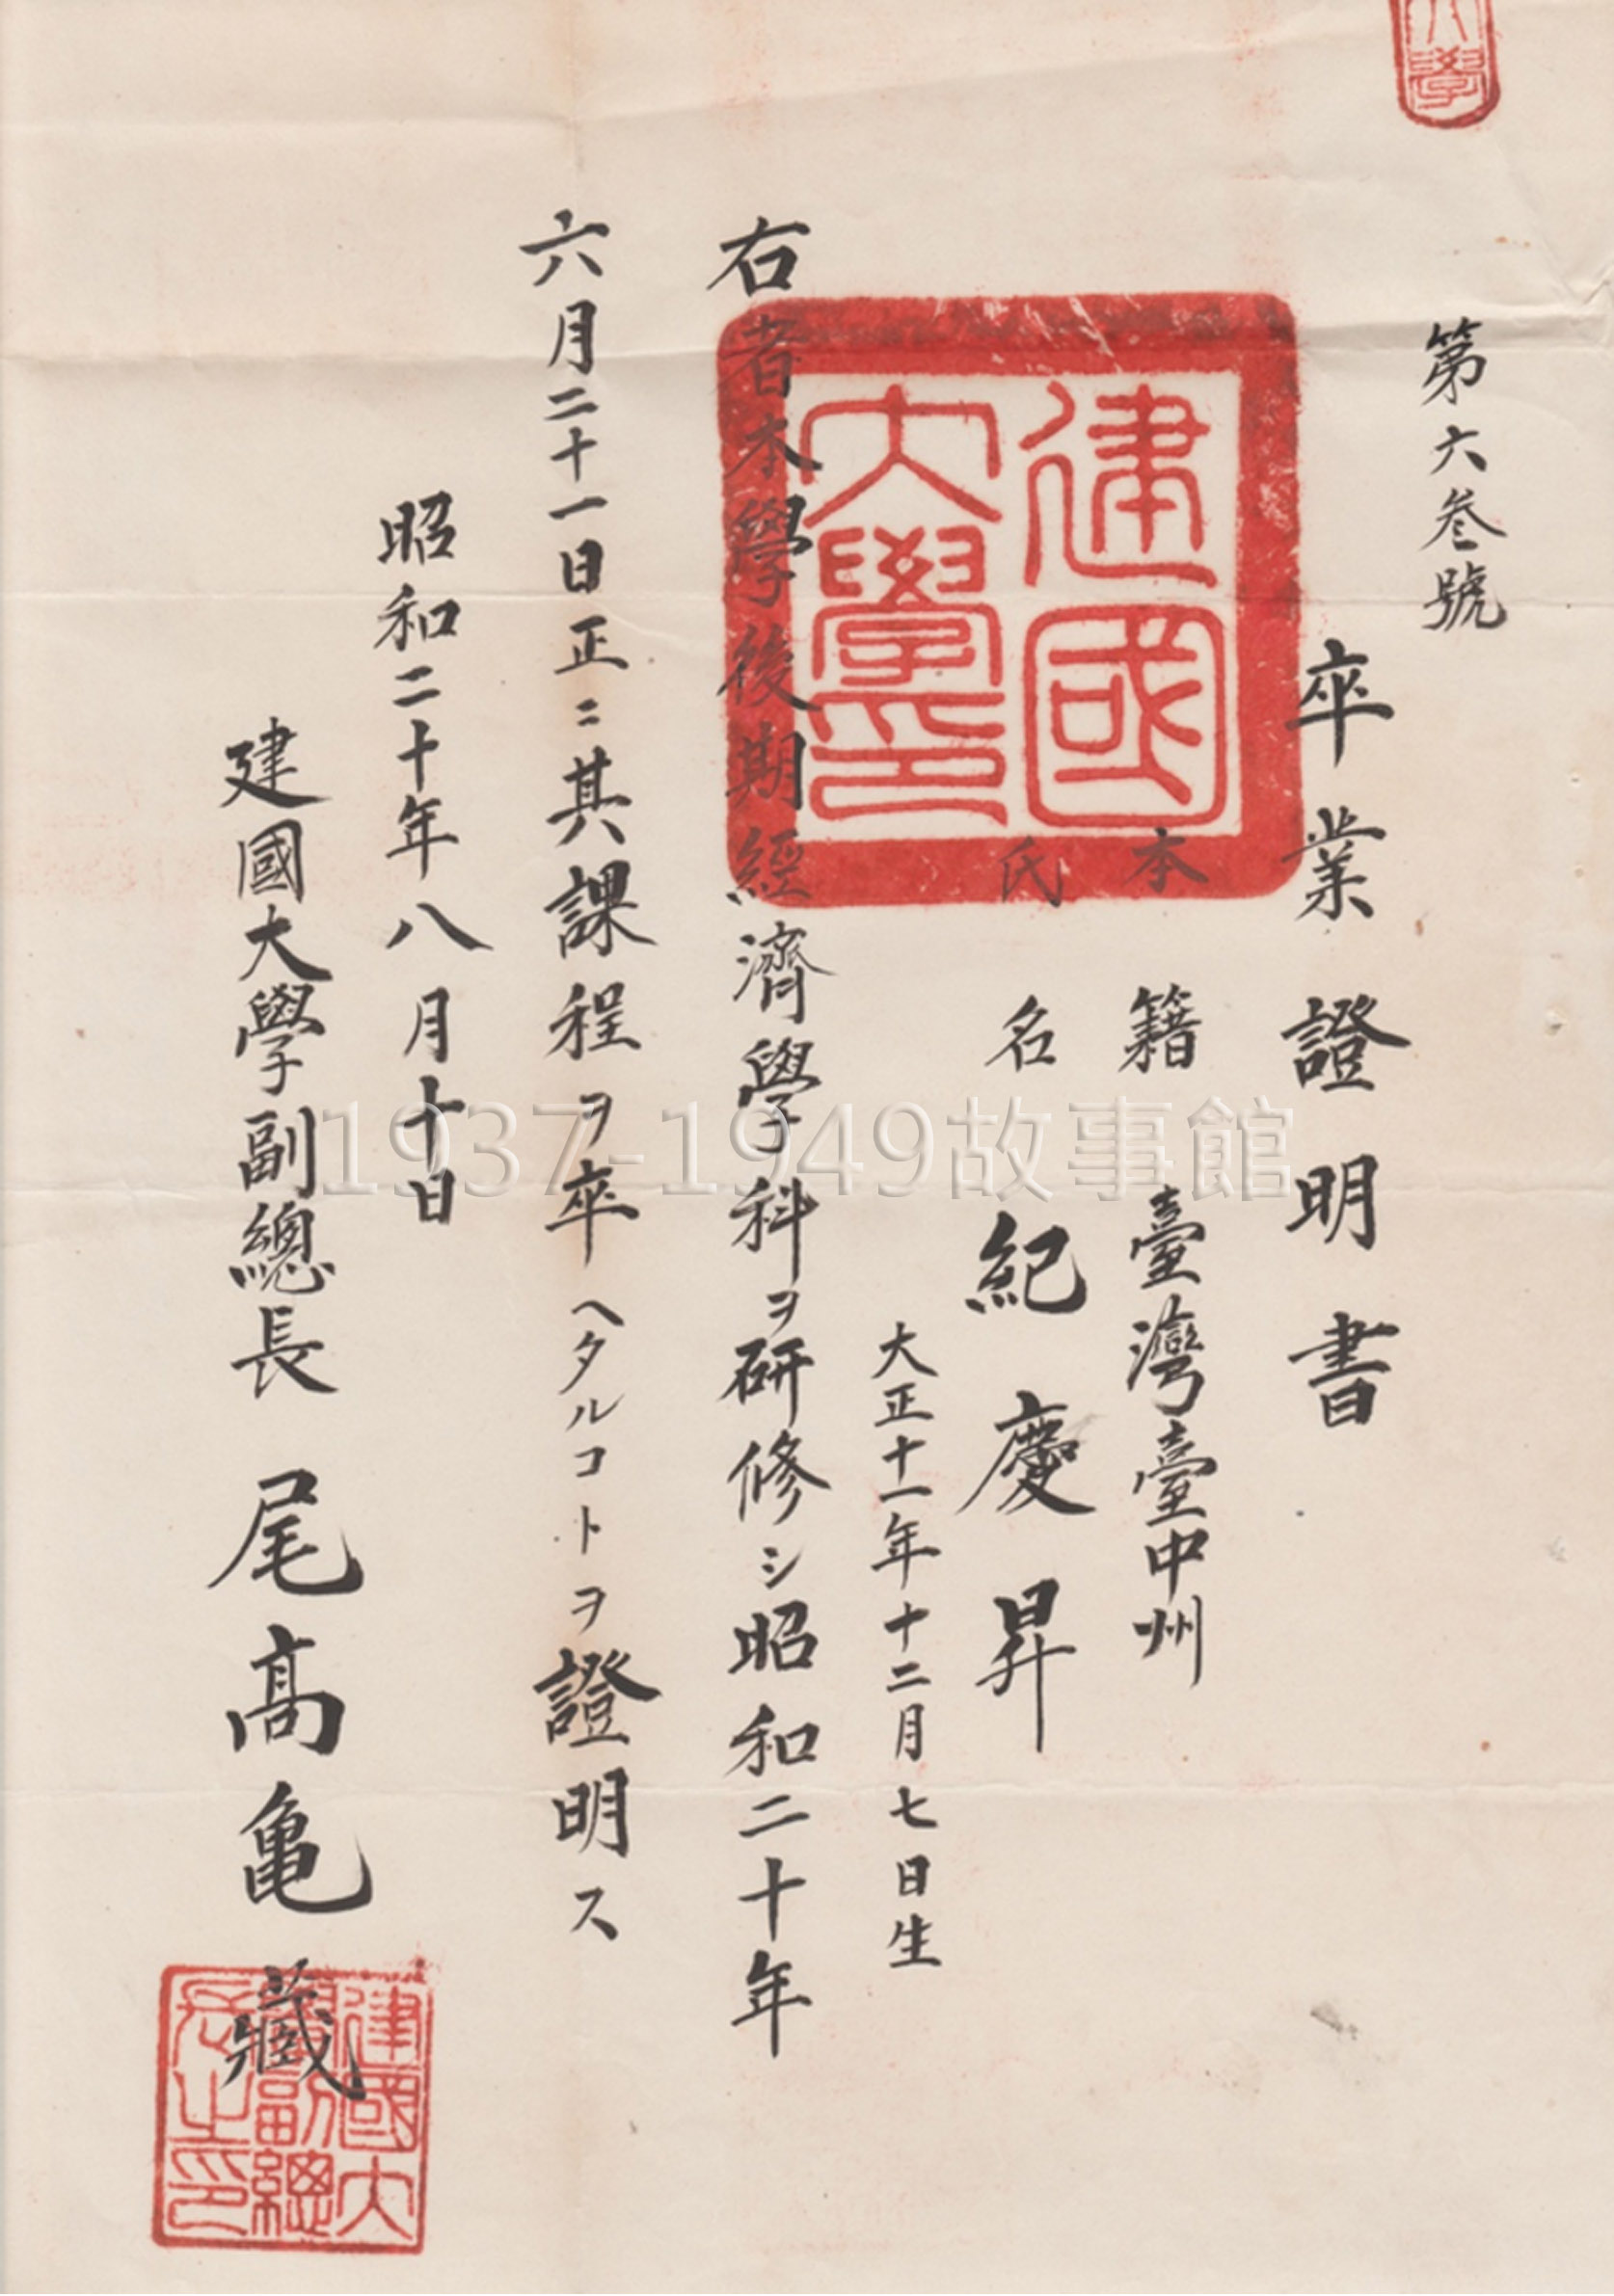 大學
第六叁號
卒業證明書
本籍 臺灣臺中州
氏名 紀慶昇
大正十一年十二月七日生
右者本學後期經濟學科ヲ研修シ昭和二十年
六月二十一日正ニ其課程ヲ卒ヘタルコトヲ證明ス
昭和二十年八月十日
建國大學副總長 尾高亀藏
建國
大學印
建國大
學副總
長之印
1937-1949故事館